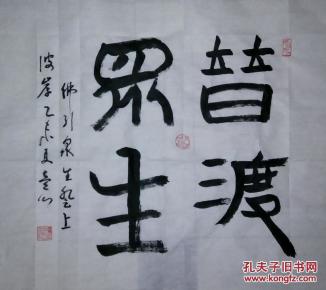 普渡
眾生
佛引眾生登上
彼岸乙未夏
孔夫子旧书网